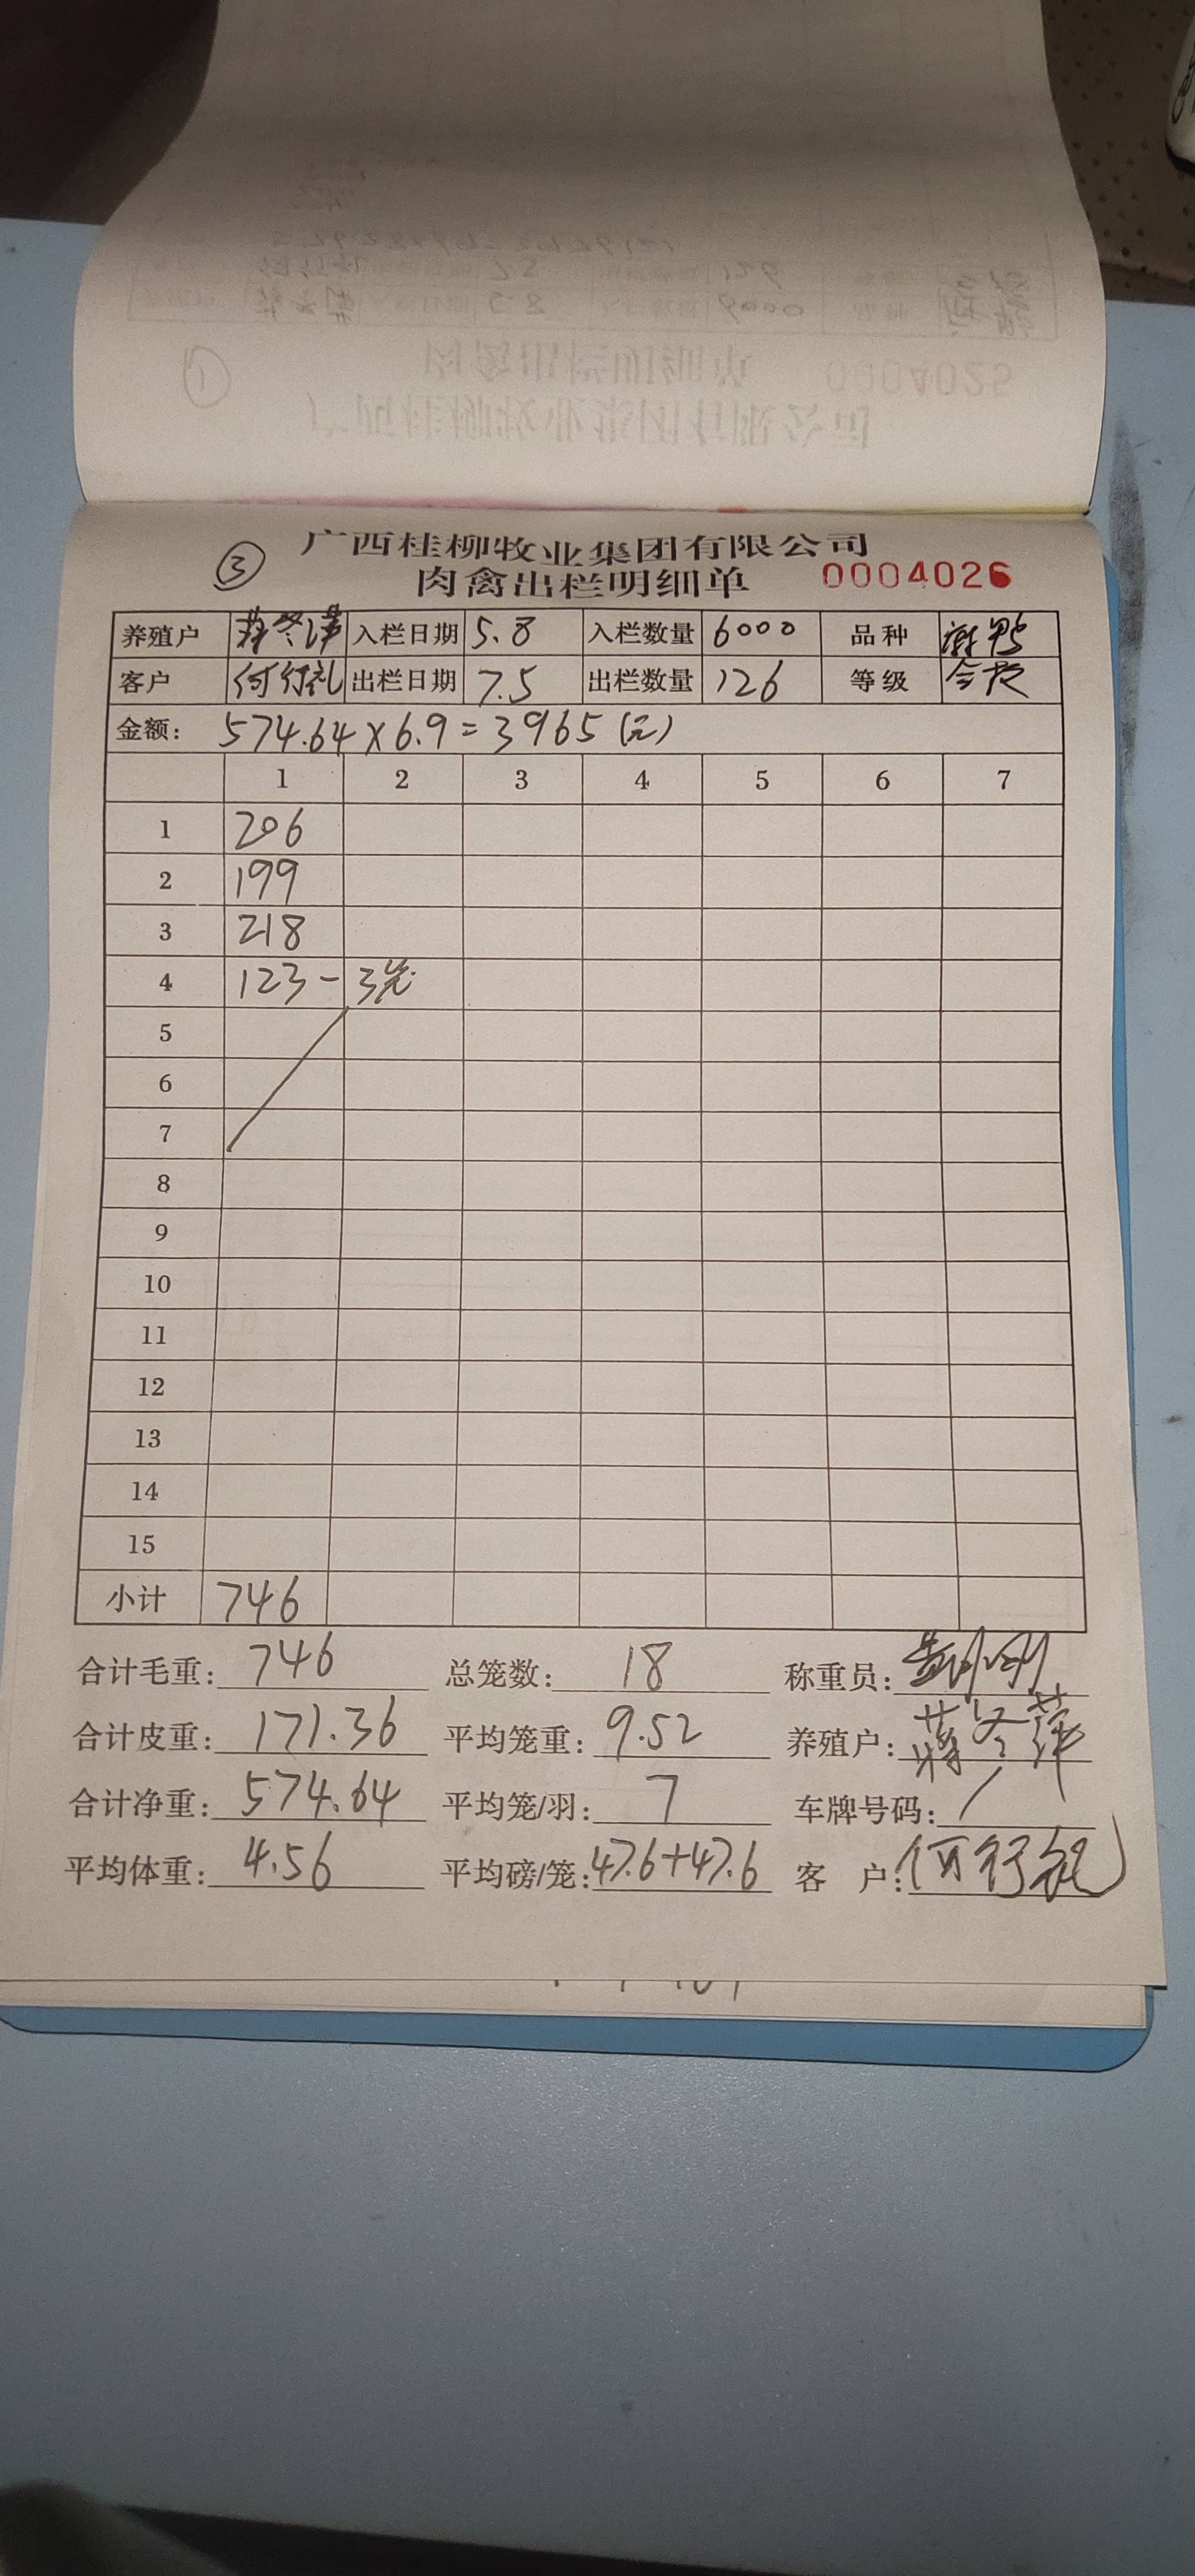 广西桂柳牧业集团有限公司
③ 肉禽出栏明细单 0004026
养殖户 蒋冬萍 入栏日期 5.8 入栏数量 6000 品种
客户 何行礼 出栏日期 7.5 出栏数量 126 等级
金额: 574.64×6.9=3965(元)
1 2 3 4 5 6 7
1 206
2 199
3 218
4 123-3笼
5
6
7
8
9
10
11
12
13
14
15
小计 746
合计毛重: 746 总笼数: 18 称重员:
合计皮重: 171.36 平均笼重: 9.52 养殖户: 蒋冬萍
合计净重: 574.64 平均笼/羽: 7 车牌号码: /
平均体重: 4.56 平均磅/笼: 47.6+47.6 客 户: 何行礼